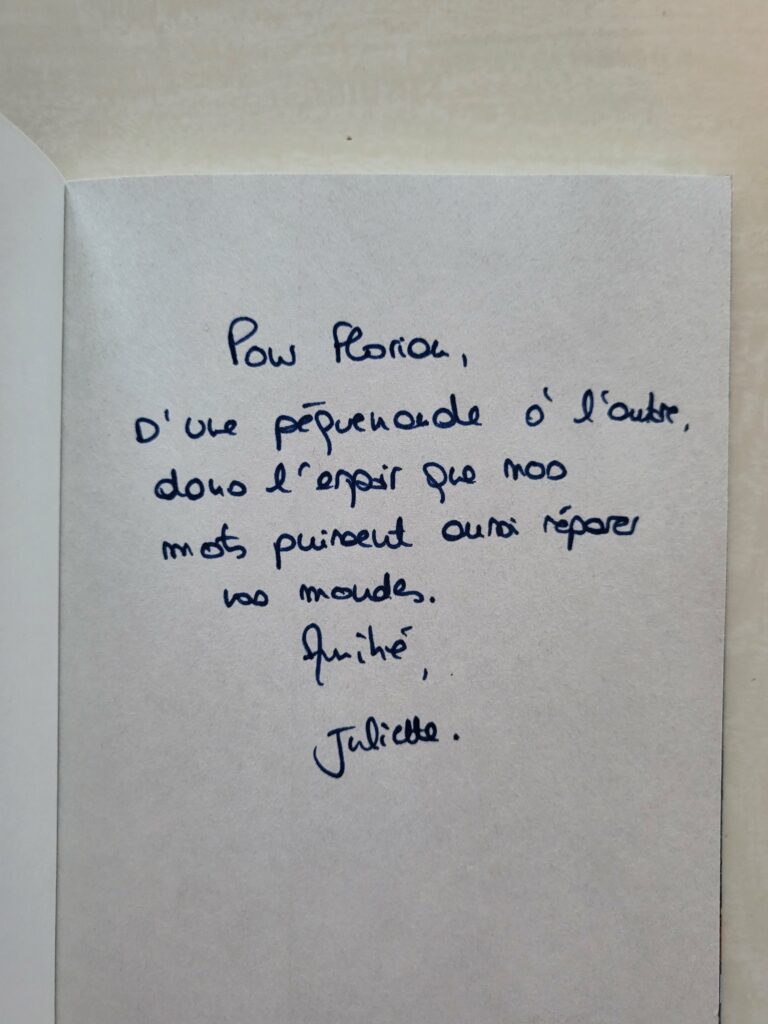 Pour Florian,
D'une péquenaude à l'autre,
dans l'espoir que nos
mots puissent aussi réparer
vos mondes.
Amitié,
Juliette.